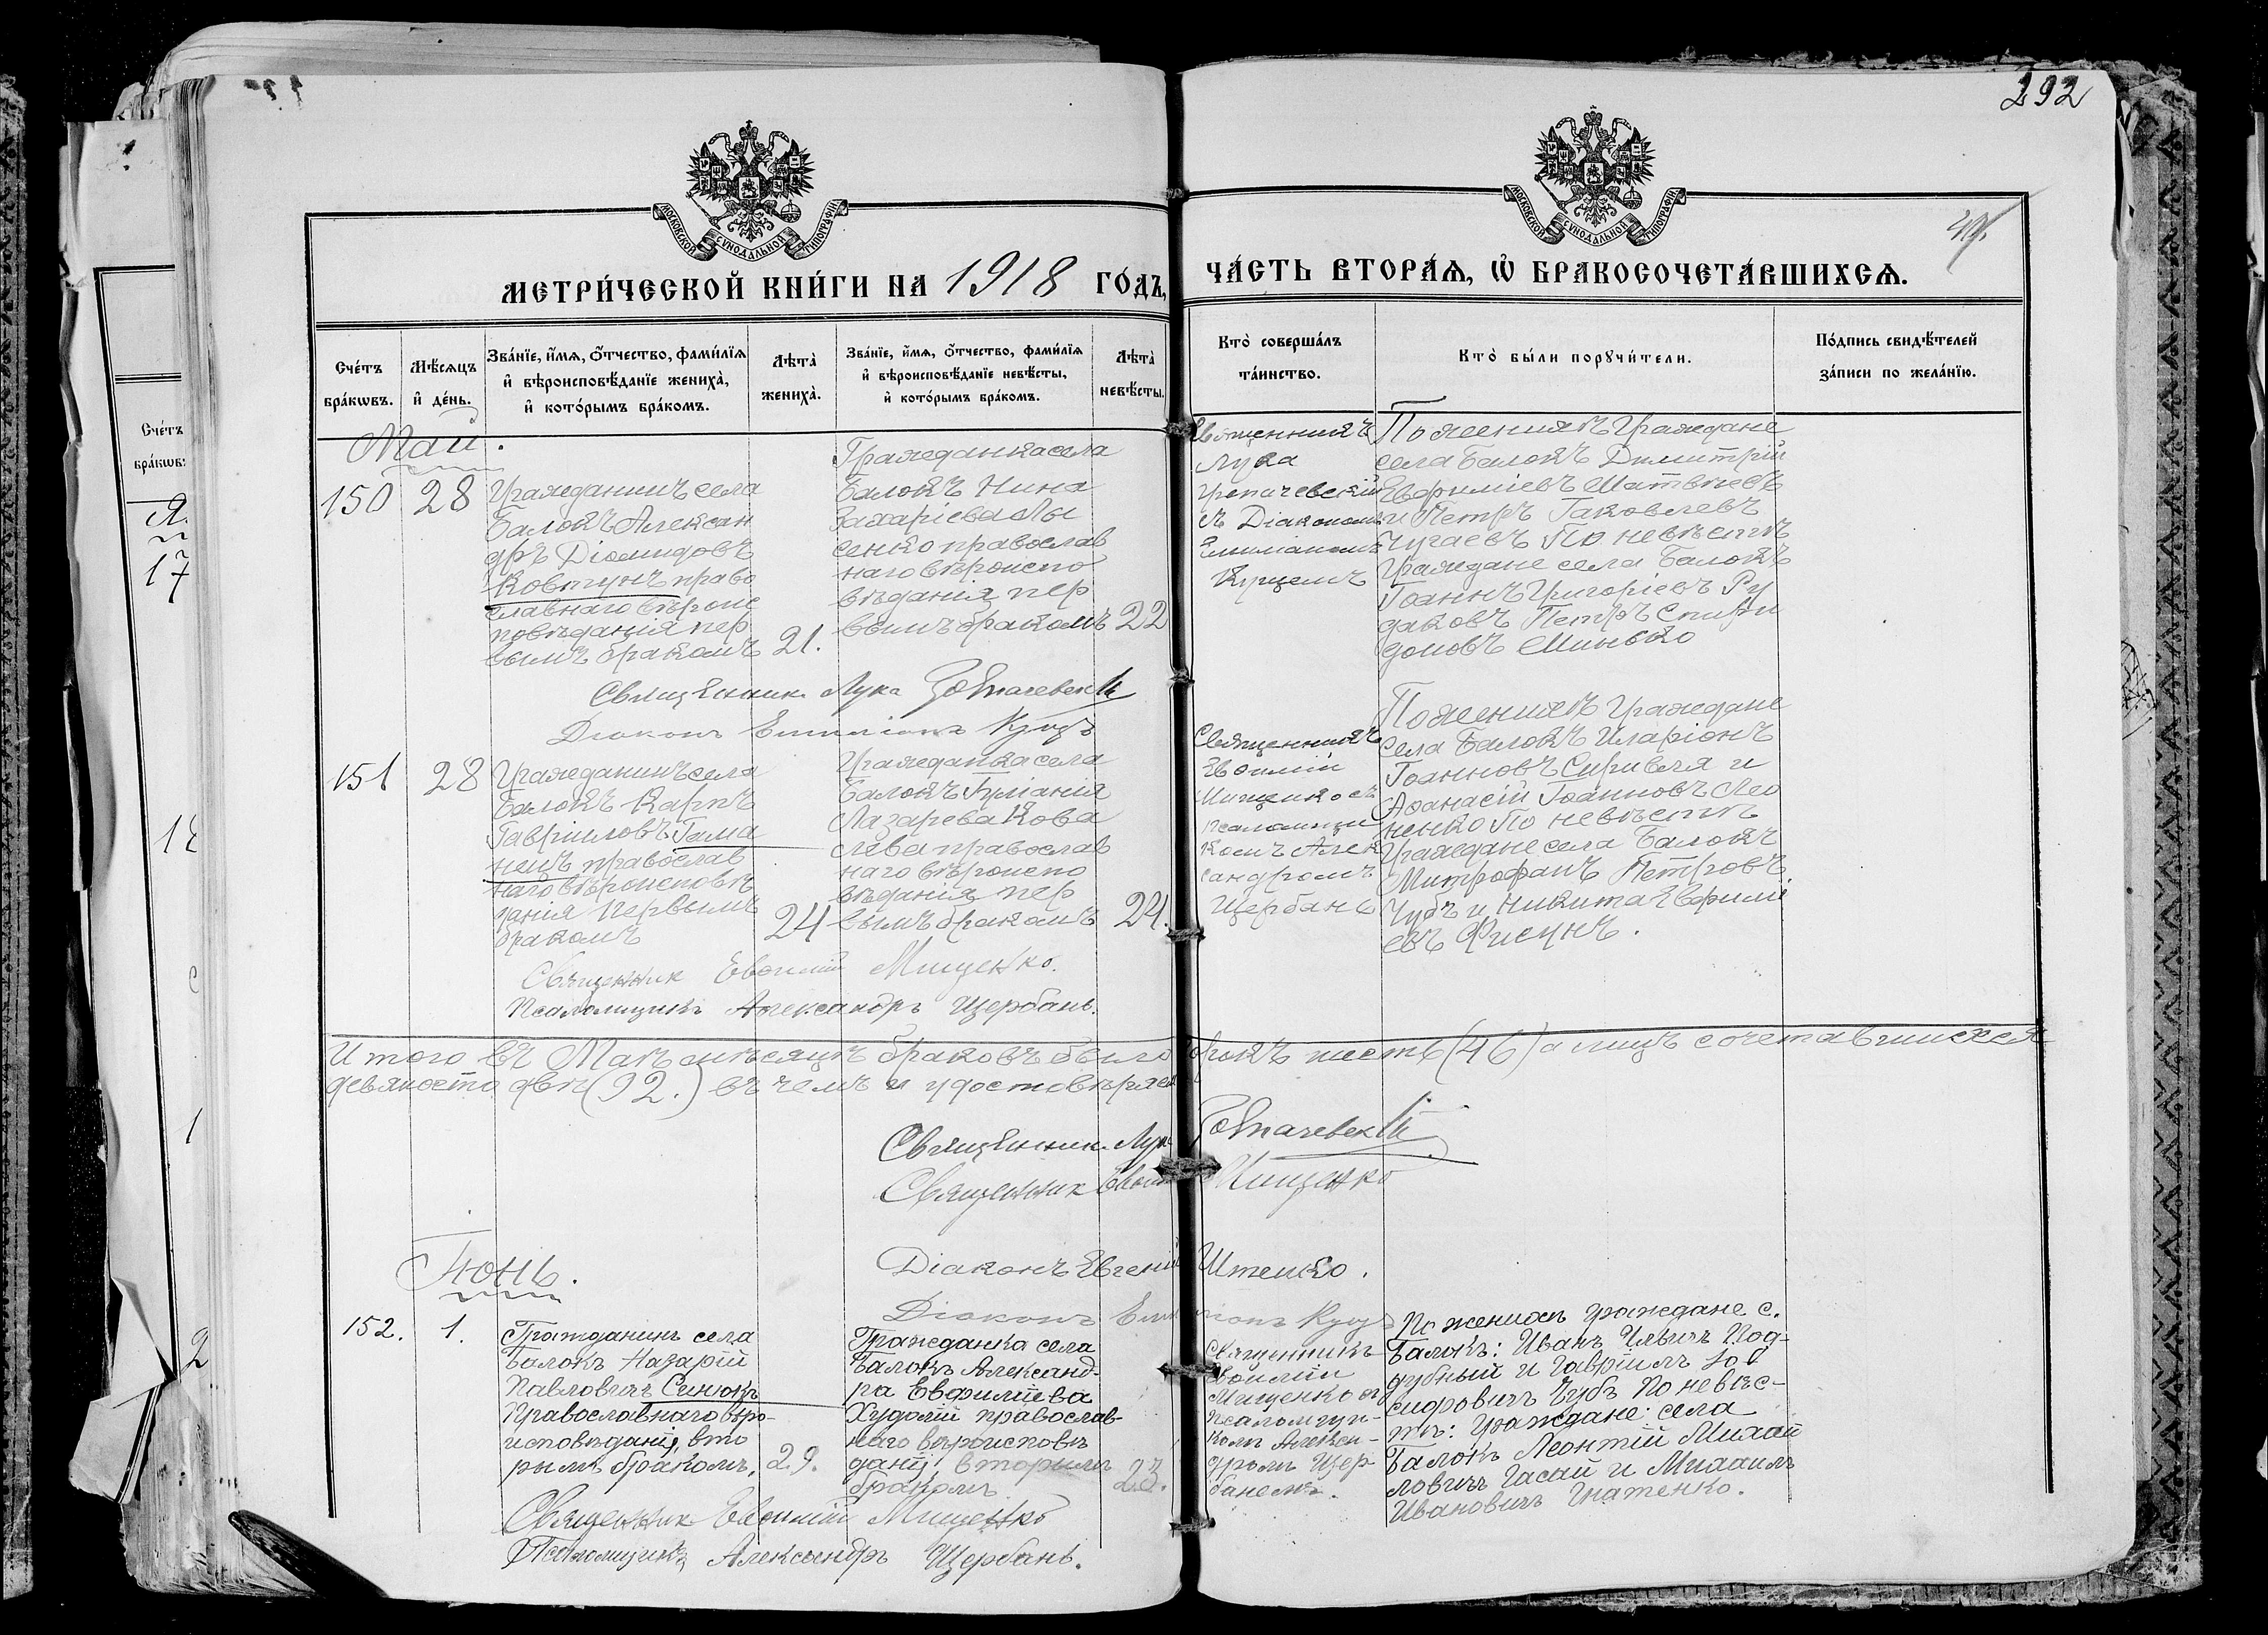 292
МОСКОВСКОЙ СУНОДАЛЬНОЙ ТИПОГРАФІИ
МОСКОВСКОЙ СУНОДАЛЬНОЙ ТИПОГРАФІИ
МЕТРИ́ЧЕСКОЙ КНИ́ГИ НА 1918 ГО́ДЪ,
ЧА́СТЬ ВТОРА́Ѧ, Ѡ҆ БРАКОСОЧЕТА́ВШИХСѦ.
Сче́тъ бра́кѡвъ.
Мѣ́сѧцъ и҆ де́нь.
Зва́нїе, и҆́мѧ, ѻ҆́тчество, фами́лїѧ и҆ вѣроисповѣ́данїе жениха̀, и҆ кото́рымъ бра́комъ.
Лѣта̀ жениха̀.
Зва́нїе, и҆́мѧ, ѻ҆́тчество, фами́лїѧ и҆ вѣроисповѣ́данїе невѣ́сты, и҆ кото́рымъ бра́комъ.
Лѣта̀ невѣ́сты.
Кто̀ соверша́лъ та́инство.
Кто̀ бы́ли порꙋчи́тели.
По́дпись свидѣ́телей за́писи по жела́нїю.
Май.
150
28
Гражданинъ села
Балокъ Алексан
дръ Діомидовъ
Ковтунъ право
славнаго вѣроис
повѣданія пер
вымъ бракомъ
21.
Гражданка села
Балокъ Нина
Захаріева Лы
сенко православ
наго вѣроиспо
вѣданія пер
вымъ бракомъ
22
Священникъ
Лука
съ Діакономъ
Емиліаномъ
Куцемъ
По женихѣ Граждане
села Балокъ Димитрій
Евфиміевъ Матвѣевъ
и Петръ Іаковлевъ
Чугаевъ По невѣстѣ
Граждане села Балокъ
Іоаннъ Григоріевъ Ру
даковъ Петръ Спири
доновъ Минько
Священникъ Лука
Діаконъ Емиліанъ Куцъ
151
28
Гражданинъ села
Балокъ Карпъ
Гавріиловъ Гама
нецъ православ
наго вѣроисповѣ
данія первымъ
бракомъ
24
Гражданка села
Балокъ Іуліанія
Лазарева Кова
лева православ
наго вѣроиспо
вѣданія пер
вымъ бракомъ
24.
Священникъ
Евѳимій
Мищенко съ
псаломщи
комъ Алек
сандромъ
Щербане
По женихѣ Граждане
села Балокъ Иларіонъ
Іоанновъ Сиривля и
Аѳанасій Іоанновъ Лео
ненко По невѣстѣ
Граждане села Балокъ
Митрофанъ Петровъ
Чубъ и Никита Ефимі
евъ Фисунъ.
Священник Евѳимій Мищенко.
Псаломщикъ Александръ Щербань.
Итого въ Маѣ мѣсяцѣ браковъ было сорокъ шесть (46) а лицъ сочетавшихся
девяносто двѣ (92.) въ чемъ и удостовѣряемъ
Священникъ Лука
Священник Евѳимій Мищенко
Діаконъ Евгеній Ищенко.
Діаконъ Емиліанъ Куцъ
Іюнь.
152.
1.
Гражданинъ села
Балокъ Назарій
Павловичъ Синюкъ
Православнаго вѣро-
исповѣданія, вто
рымъ бракомъ.
29.
Гражданка села
Балокъ Александ-
ра Евфиміева
Худолій православ-
наго вѣроисповѣ
данія вторымъ
бракомъ
23.
Священникъ
Евѳимій
Мищенко съ
псаломщи-
комъ Алексан-
дромъ Щер
банемъ.
По женихѣ граждане с.
Балокъ: Иванъ Ильичъ Под-
дубный и Гавріилъ Іо
сифовичъ Чубъ По невѣс-
тѣ: граждане села
Балокъ Леонтій Михай
ловичъ Гасай и Михаилъ
Ивановичъ Игнатенко.
Священник Евѳимій Мищенко
Псаломщикъ Александръ Щербань.